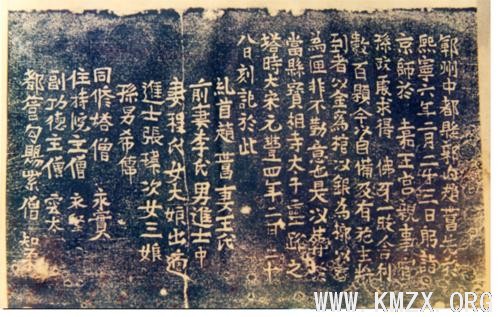 鄆州中都縣郭內趙先於
熙寧六年二月二十三日躬詣
京師於 嘉王宮親事官
孫政處求得 佛牙一段舍利
數百顆今以自備及有施主將
到者以金為棺以銀為槨以石
為匣非不勤意也是以葬於
當縣寶相寺太子靈蹤之
塔時大宋元豐四年二月二十
八日刻記於此
糺首趙妻王氏
前妻李氏男進士中
妻程氏女大娘出適
進士張環次女三娘
孫男
同修塔僧 永
住持院主僧 永
副功德主僧 雲太
都管勾賜紫僧 知
WWW.KMZX.ORG